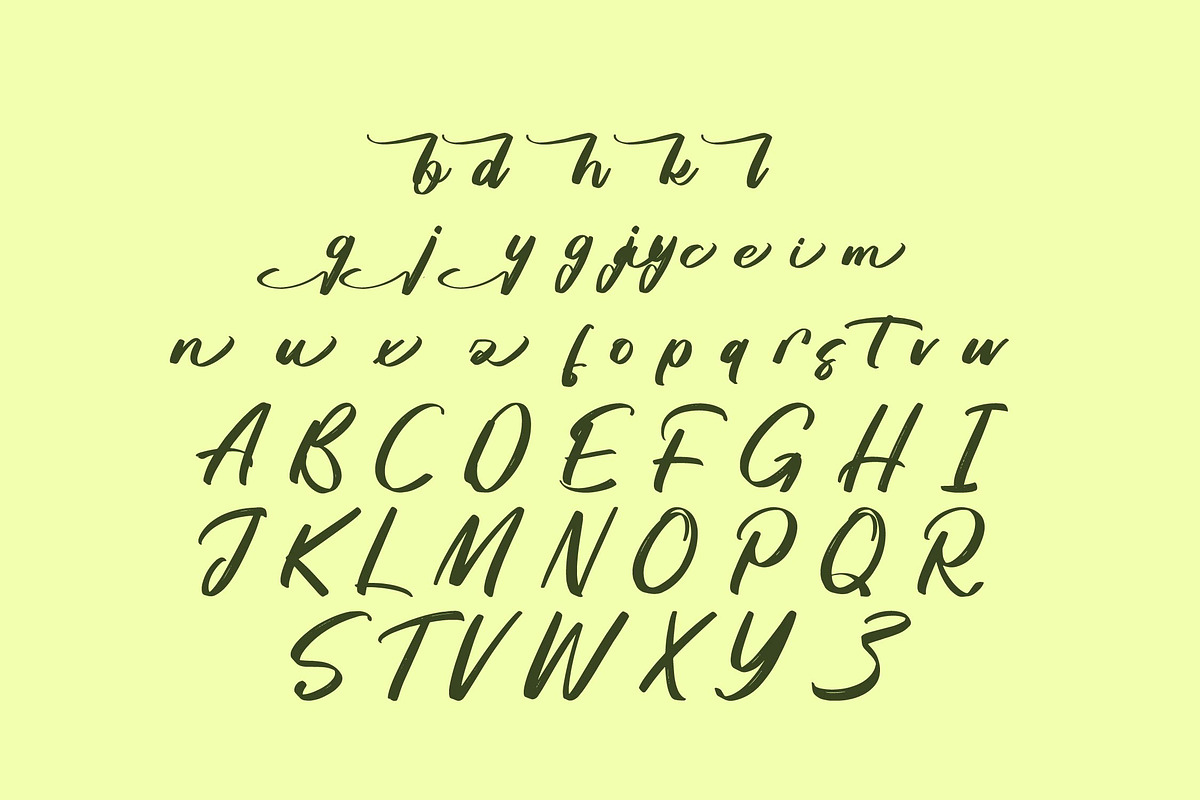 b d h k l
g j y g j a y c e i m
n u x z f o p q r s T v w
A B C D E F G H I
J K L M N O P Q R
S T V W X Y Z